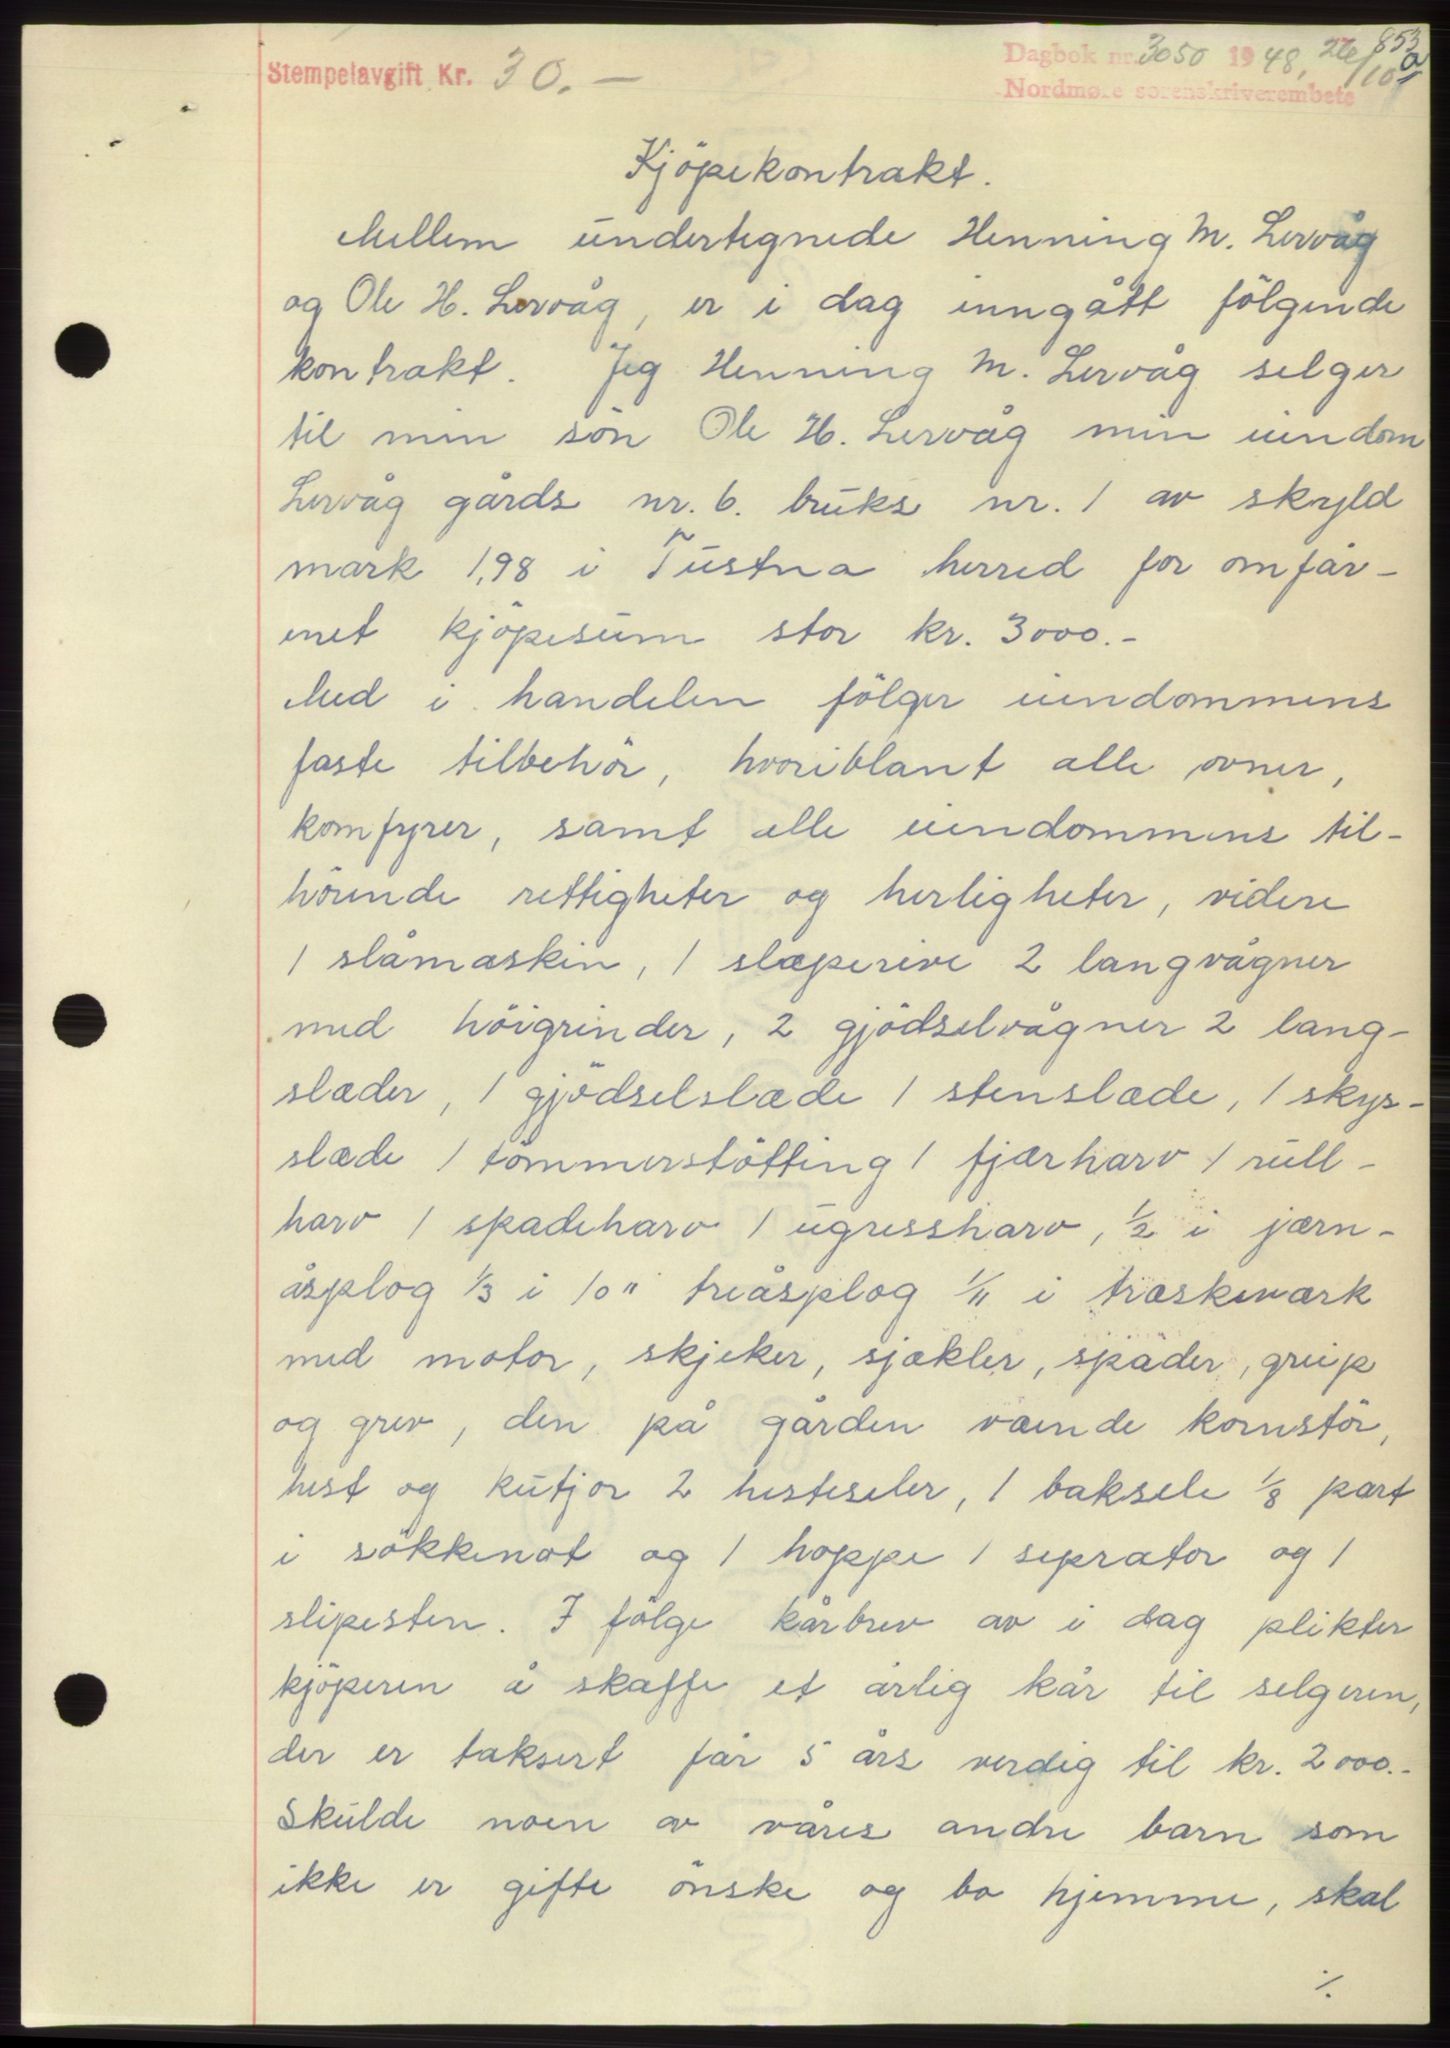 Stempelavgift Kr. 30.—
Dagbok nr. 3050 1948, 26/10
853
Nordmøre sorenskriverembete
Kjöpekontrakt.
Mellem undertegnede Henning M. Lervåg
og Ole H. Lervåg, er i dag inngått fölgende
kontrakt. Jeg Henning M. Lervåg selger
til min sön Ole H. Lervåg min eiendom
Lervåg gårds nr. 6. bruks nr. 1 av skyld
mark 1,98 i Tustna herred for omfår-
enet kjöpesum stor kr. 3000.-
Med i handelen fölger eiendommens
faste tilbehör, hvoriblant alle ovner,
komfyrer, samt alle eiendommens til-
hörende rettigheter og herligheter, videre
1 slåmaskin, 1 slæperive 2 langvågner
med höigrinder, 2 gjödselvågner 2 lang-
slæder, 1 gjödselslæde 1 stenslæde, 1 skys-
slæde 1 tömmerstötting 1 fjærharv 1 rull-
harv 1 spadeharv 1 ugressharv, 1/2 i jærn-
åsplog 1/3 i 10" treåsplog 1/11 i træskeværk
med motor, skjeker, sjækler, spader, greip
og grev, den på gården væende kornstör,
hest og kutjor 2 hesteseler, 1 baksele 1/8 part
i sökkenot og 1 hoppe 1 seprator og 1
slipesten. I fölge kårbrev av i dag plikter
kjöperen å skaffe et årlig kår til selgeren,
der er taksert får 5 års verdig til kr. 2000.-
Skulde noen av våres andre barn som
ikke er gifte önske og bo hjemme, skal
./.